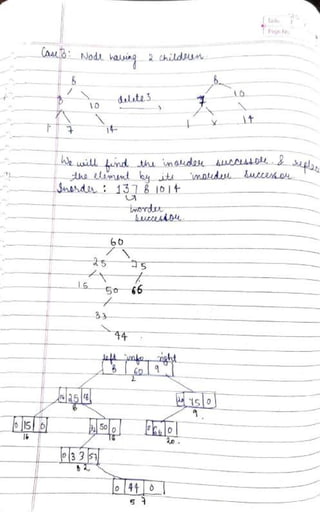 Date
Page No.
Case 3: Node having 2 children
8 8
3 10 delete 3 7 10
1 7 14 1 x 14
We will find the inorder successor &
the element by its inorder successor
Inorder: 1 3 7 8 10 14
inorder
successor
60
25 75
15 50 66
33
44
left info right
8 60 9
2
25
8
75 0
9
0 15 0
16
50 0
18
66 0
20
0 33 57
82
0 44 0
57